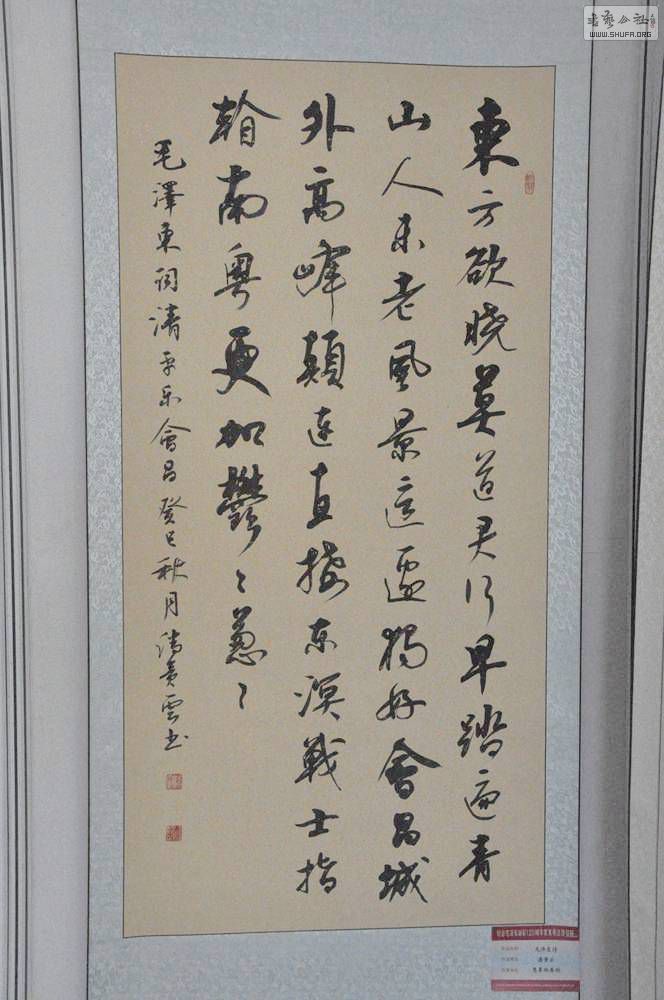 書藝公社
WWW.SHUFA.ORG
東方欲晓莫道君行早踏遍青
山人未老風景這邊獨好會昌城
外高峰顛連直接東溟戰士指
看南粤更加鬱〻葱〻
毛澤東词清平乐會昌癸巳秋月雲书